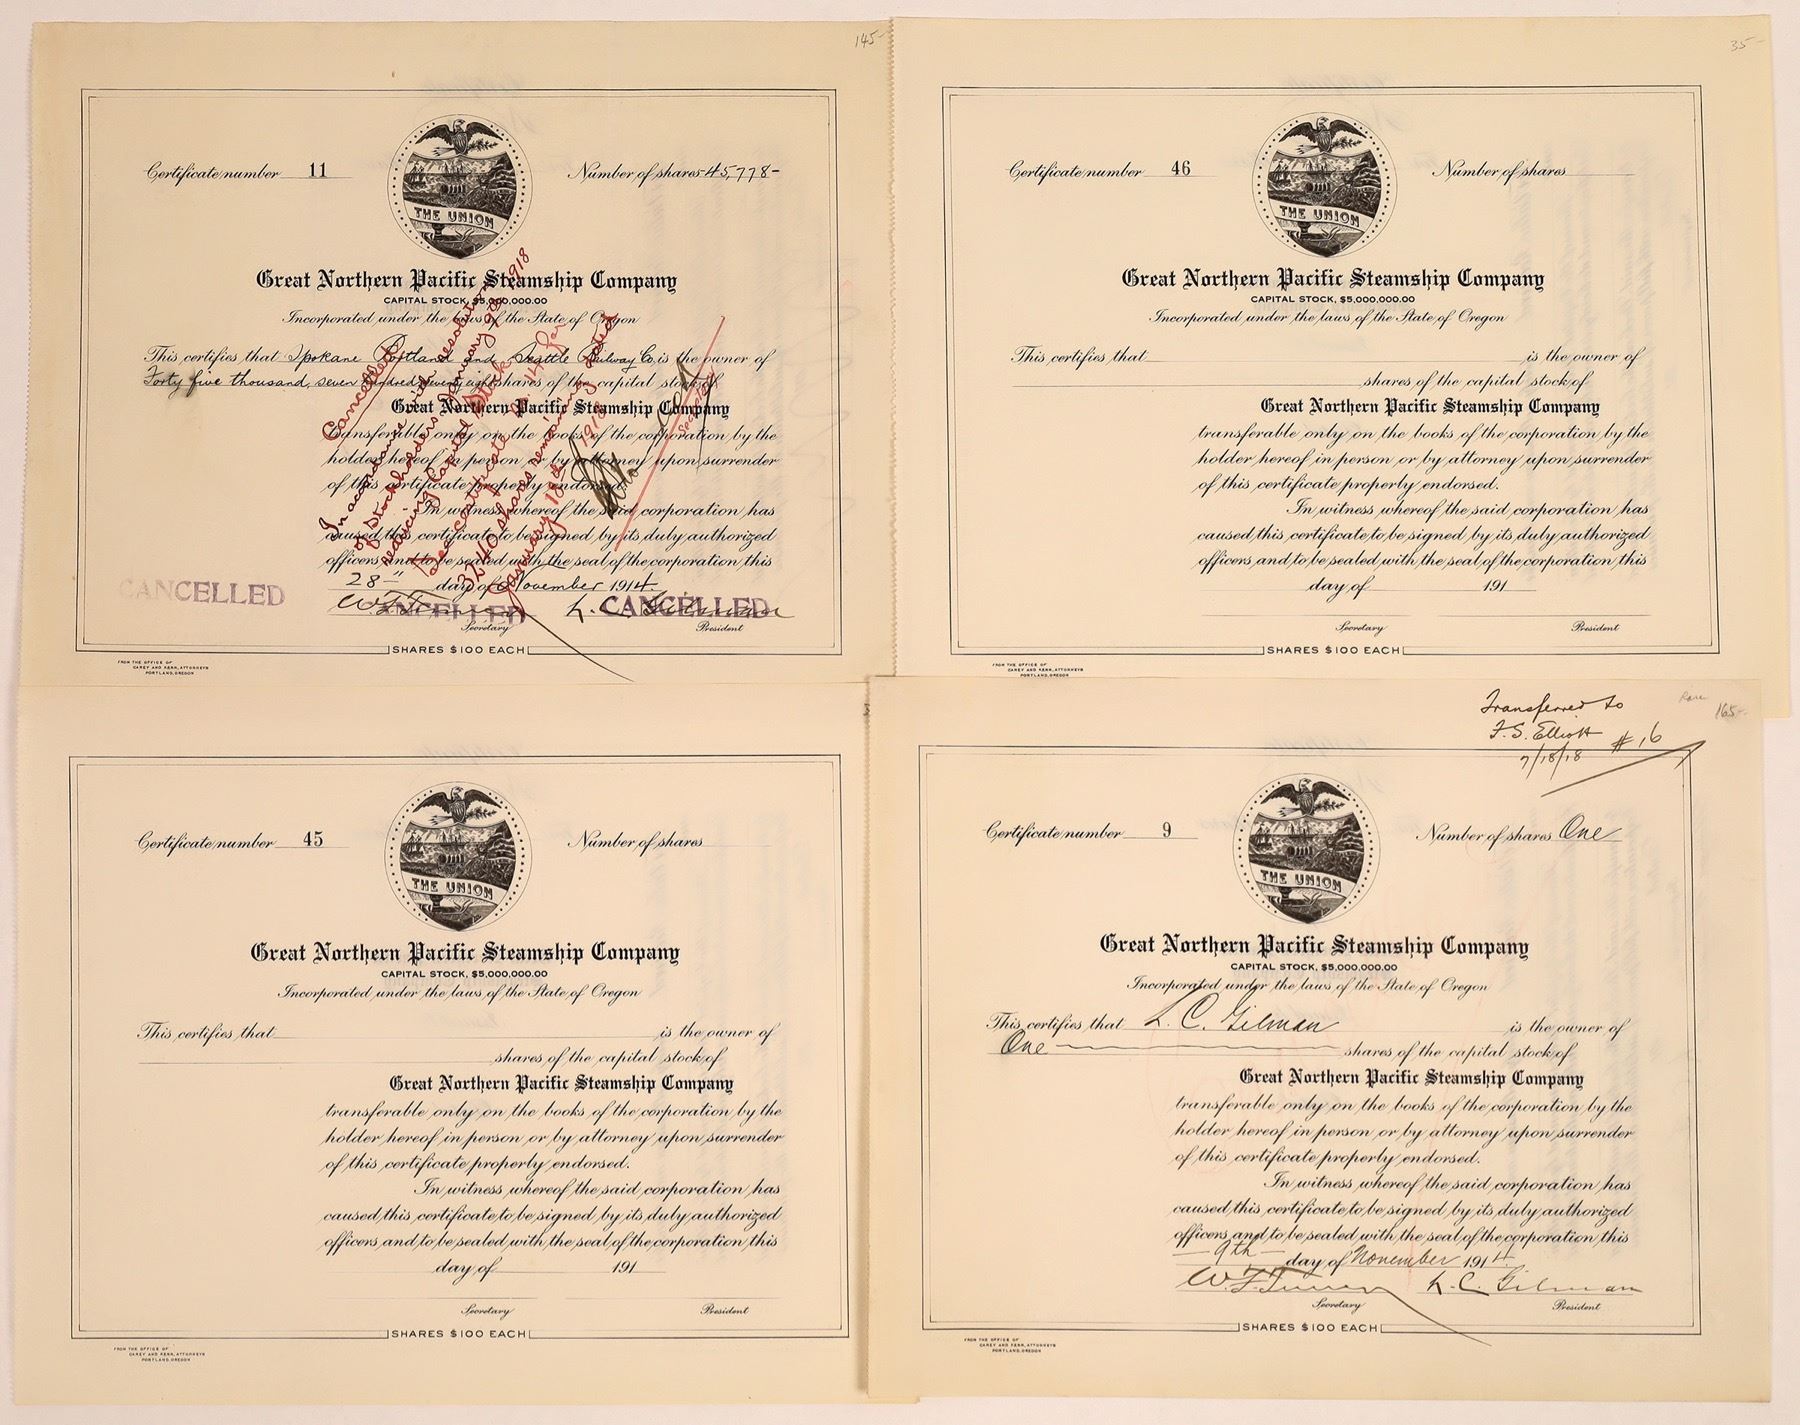 145-
Certificate number 11
Number of shares 45,778-
THE UNION
Great Northern Pacific Steamship Company
CAPITAL STOCK, $5,000,000.00
Incorporated under the laws of the State of Oregon
This certifies that Spokane Portland and Seattle Railway Co. is the owner of
Forty five thousand, seven hundred seventy eight shares of the capital stock of
Great Northern Pacific Steamship Company
transferable only on the books of the corporation by the
holder hereof in person or by attorney upon surrender
of this certificate properly endorsed.
In witness whereof the said corporation has
caused this certificate to be signed by its duly authorized
officers and to be sealed with the seal of the corporation this
28" day of November 1914.
Secretary
L. C. Gilman
President
SHARES $100 EACH
FROM THE OFFICE OF
CAREY AND KERR, ATTORNEYS
PORTLAND, OREGON
Cancelled
In accordance with resolution
of Stockholders January 9th 1918
reducing Capital Stock.
See certificate No 14 for
3240 shares remaining dated
January 18th 1918
CANCELLED
CANCELLED
CANCELLED
35-
Certificate number 46
Number of shares
THE UNION
Great Northern Pacific Steamship Company
CAPITAL STOCK, $5,000,000.00
Incorporated under the laws of the State of Oregon
This certifies that is the owner of
shares of the capital stock of
Great Northern Pacific Steamship Company
transferable only on the books of the corporation by the
holder hereof in person or by attorney upon surrender
of this certificate properly endorsed.
In witness whereof the said corporation has
caused this certificate to be signed by its duly authorized
officers and to be sealed with the seal of the corporation this
day of 191
Secretary
President
SHARES $100 EACH
FROM THE OFFICE OF
CAREY AND KERR, ATTORNEYS
PORTLAND, OREGON
Certificate number 45
Number of shares
THE UNION
Great Northern Pacific Steamship Company
CAPITAL STOCK, $5,000,000.00
Incorporated under the laws of the State of Oregon
This certifies that is the owner of
shares of the capital stock of
Great Northern Pacific Steamship Company
transferable only on the books of the corporation by the
holder hereof in person or by attorney upon surrender
of this certificate properly endorsed.
In witness whereof the said corporation has
caused this certificate to be signed by its duly authorized
officers and to be sealed with the seal of the corporation this
day of 191
Secretary
President
SHARES $100 EACH
FROM THE OFFICE OF
CAREY AND KERR, ATTORNEYS
PORTLAND, OREGON
Transferred to
F. S. Elliott
7/18/18 #16
Rare
165-
Certificate number 9
Number of shares One
THE UNION
Great Northern Pacific Steamship Company
CAPITAL STOCK, $5,000,000.00
Incorporated under the laws of the State of Oregon
This certifies that L. C. Gilman is the owner of
One shares of the capital stock of
Great Northern Pacific Steamship Company
transferable only on the books of the corporation by the
holder hereof in person or by attorney upon surrender
of this certificate properly endorsed.
In witness whereof the said corporation has
caused this certificate to be signed by its duly authorized
officers and to be sealed with the seal of the corporation this
9th day of November 1914.
L. C. Gilman
Secretary
President
SHARES $100 EACH
FROM THE OFFICE OF
CAREY AND KERR, ATTORNEYS
PORTLAND, OREGON